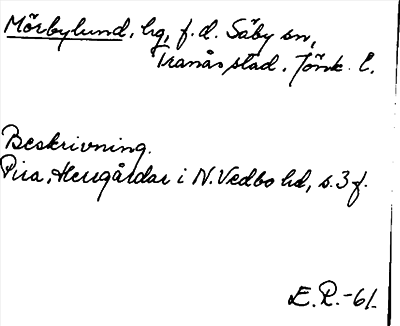 Mörbylund, hg, f.d. Säby sn,
Tranås stad. Jönk. l.
Beskrivning.
Pira, Herrgårdar i N. Vedbo hd, s. 3 f.
E. P. -61.